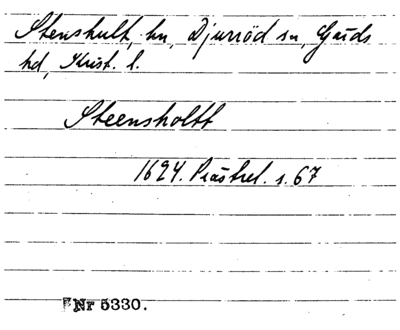 Stenshult, hn, Djurröd sn, Gärds
hd, Krist. l.
Steensholtt
1624. Prästrel. s. 67
Nr 5330.